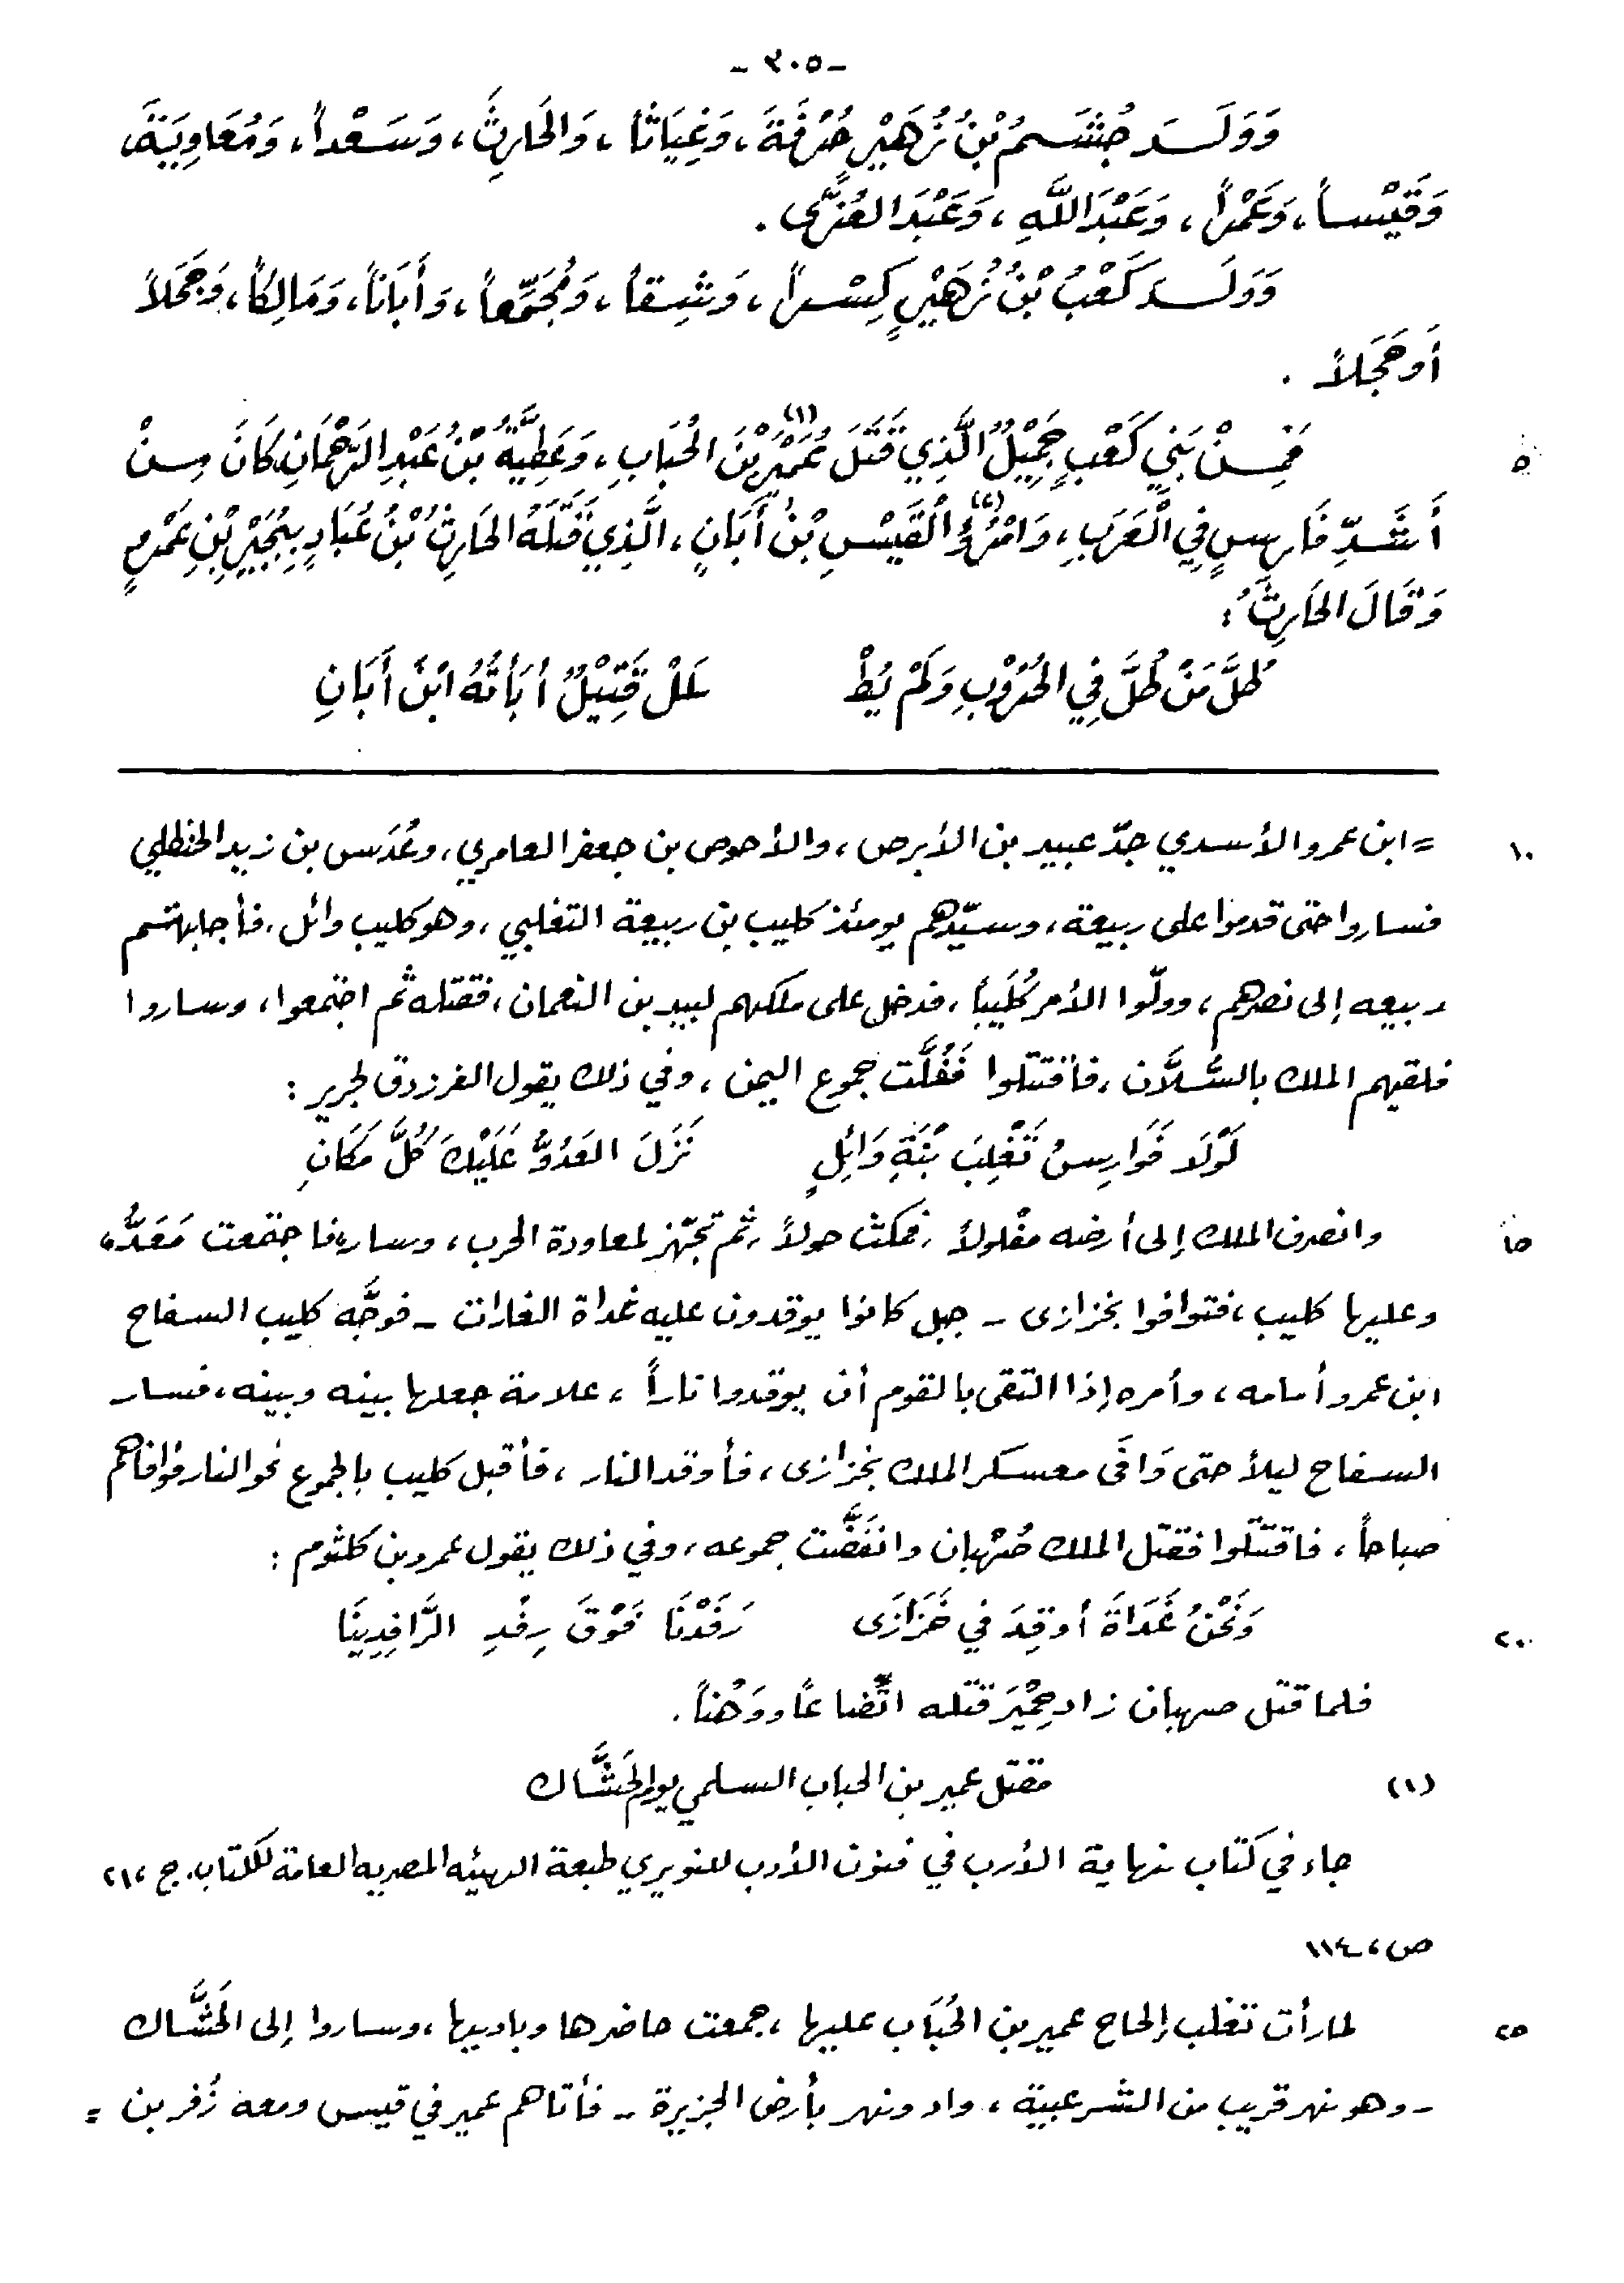 - ٣٠٥ -
وَوَلَدَ جُشَمُ بْنُ زُهَيْرٍ حُرْفَةَ، وَغِيَاثاً، وَالحَارِثَ، وَسَعْداً، وَمُعَاوِيَةَ،
وَقَيْساً، وَعَمْراً، وَعَبْدَ اللَّهِ، وَعَبْدَ العُزَّى.
وَوَلَدَ كَعْبُ بْنُ زُهَيْرٍ كِسْراً، وَشِقاً، وَمُجَمِّعاً، وَأَبَاناً، وَمَالِكاً، وَجَحَلاً
أَوحَجَلاً.
٥ فَمِنْ بَنِي كَعْبٍ جَمِيْلٌ الَّذِي قَتَلَ عُمَيْرَ بْنَ الحُبَابِ (١)، وَعَطِيَّةُ بْنُ عَبْدِ الرَّحْمَانِ كَانَ مِنْ
أَشَدِّ فَارِسٍ فِي الْعَرَبِ، وَامْرُؤُ (٢) الْقَيْسِ بْنُ أَبَانٍ، الَّذِي قَتَلَهُ الحَارِثُ بْنُ عُبَادٍ بِبُجَيْرِ بْنِ عَمْرٍو
وَقَالَ الحَارِثُ:
طُلَّ مَنْ طُلَّ فِي الحُرُوْبِ وَلَمْ يُطْ لَلْ قَتِيْلٌ أَبَأتُهُ ابْنَ أَبَانِ
١٠ = ابن عمرو الأسدي جدّ عبيد بن الأبرص، والأحوص بن جعفر العامري، وعُدَس بن زيد الحنظلي
فساروا حتى قدموا على ربيعة، وسيّدهم يومئذ كليب بن ربيعة التغلبي، وهو كليب وائل، فأجابهتم
ربيعه إلى نصرهم، وولّوا الأمر كُلَيباً، فدخل على ملكهم لبيد بن النعمان، فقتله ثم اجتمعوا، وساروا
فلقيهم الملك بالسُّلاَّن، فأقتتلوا فَفُلَّت جموع اليمن، وفي ذلك يقول الفرزدق لجرير:
لَوْلاَ فَوَارِسُ تَغْلِبَ بْنَةِ وَائِلٍ نَزَلَ العَدُوُّ عَلَيْكَ كُلَّ مَكَانِ
١٥ وانصرف الملك إلى أرضه مفلولاً، فمكث حولاً، ثم تجهّز لمعاودة الحرب، وسار، فاجتمعت مَعَدُّ،
وعليها كليب، فتوافوا بخزازى - جبل كانوا يوقدون عليه غداة الغارات - فوجَّه كليب السفاح
ابن عمرو أمامه، وأمره إذا التقى بالقوم أن يوقدوا ناراً، علامة جعلها بينه وبينه، فسار
السفاح ليلاً حتى وَافَى معسكر الملك بخزازى، فأوقد النار، فأقبل كليب بالجموع نحو النار فوافاهم
صباحاً، فاقتتلوا فقتل الملك صُهْبان وانفَضَّت جموعه، وفي ذلك يقول عمرو بن كلثوم:
٢٠ وَنَحْنُ غَدَاةَ أوقِدَ في خَزَازَى رَفَدْنَا فَوْقَ رِفْدِ الرَّافِدِينَا
فلما قتل صهبان زاد حِمْيَرَ قتله اتِّضاعاً ووَهْناً.
(١) مقتل عمير بن الحباب السلمي يوم الحَشَّاك
جاء في كتاب نهاية الأرب في فنون الأدب للنويري طبعة الهيئه المصريه العامة للكتاب. ج، ٢١،
ص، ١١٤
٢٥ لما رأت تغلب إلحاح عمير بن الحُبَاب عليها، جمعت حاضرها وباديها، وساروا إلى الحَشَّاك
- وهو نهر قريب من الشرعبية، واد ونهر بأرض الجزيرة - فأتاهم عمير في قيس ومعه زُفر بن =